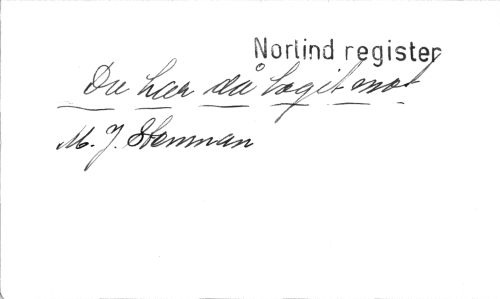 Norlind register
Du har då tagit mot
M. J. Stenman